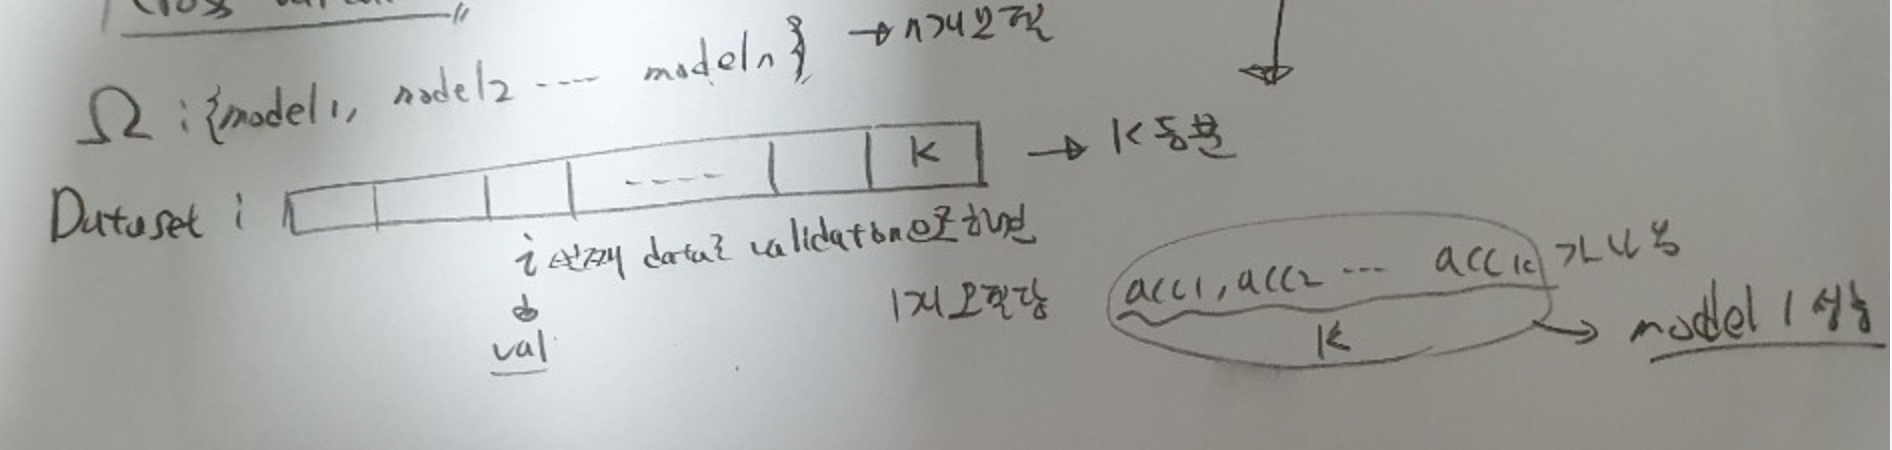 Ω : {model1, model2 ---- modeln} → n개모델
Dataset : ---- K → K등분
i번째 data를 validation으로 하면
↓
val
1개 모델당 acc1, acc2 --- acck 가 나옴
K → model 1 성능